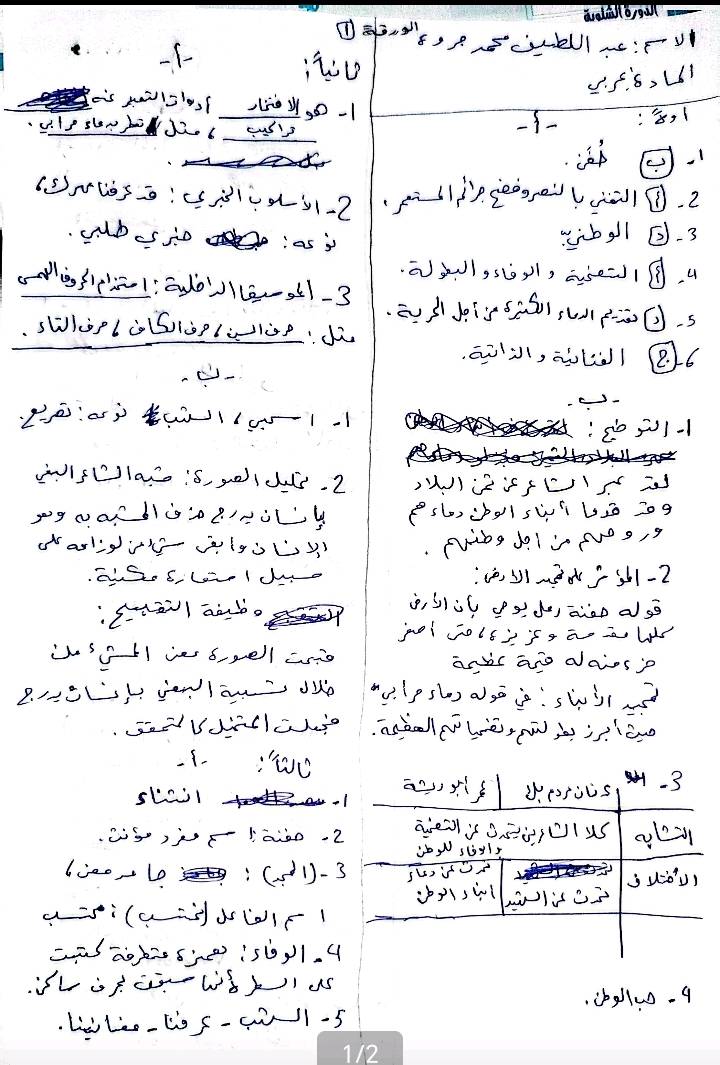 الدورة الشتوية
الورقة (1)
الاسم: عبد اللطيف محمد مروة
المادة: عربي
أولاً:
-أ-
1- (ب) خُفُن.
2- (أ) التغني بالنصر وفضح جرائم المستعمر.
3- (د) الوطنية
4- (أ) التضحية والوفاء والبطولة.
5- (د) تقديم الدماء الكثيرة من أجل الحرية.
6- (ج) الغنائية والذاتية.
-ب-
1- التوضيح:
لقد عبر الشاعر عن البلاد
وقد قدموا أبناء الوطن دماءهم
وروحهم من أجل وطنهم.
2- المؤشر على تمجيد الأرض:
قوله حفنة رمل يوحي بأن الأرض
كلها مقدسة وعزيزة، حتى أصغر
جزء منه له قيمة عظيمة
تمجيد الأبناء: في قوله دماء مرابي"
حيث أبرز بطولتهم وتضحياتهم العظيمة.
3-
عدنان مردم بك
عمر أبو ريشة
التشابه
كلا الشاعرين يتحدث عن التضحية
والوفاء للوطن
الاختلاف
تحدث عن الشهيد
تحدث عن دماء
أبناء الوطن
4- حب الوطن.
ثانياً:
-أ-
1- هو الافتخار أدوات التعبير عنه
تراكيب، مثل تعطر بدماء مرابي.
2- الأسلوب الخبري: قد عرفنا مهرك،
نوعه: خبري طلبي.
3- الموسيقا الداخلية: استخدام الحروف الهمس
مثل: حرف السين، حرف الكاف، حرف التاء.
-ب-
1- اسحبي، السحب نوعه: تصريع.
2- تحليل الصورة: شبه الشاعر البغي
بإنسان يدرج حذف المشبه به وهو
الإنسان وأبقى شيء من لوازمه على
سبيل استعارة مكنية.
وظيفة التقبيح:
قبحت الصورة معنى الشيء من
خلال تشبيه البغي بإنسان يدرج
فجعلت المتخيل كالمتحقق.
ثالثاً:
-أ-
1- استثناء
2- حفنة: اسم مفرد مؤنث.
3- (المجد): جامد معنى،
اسم الفاعل (تحتسب): محتسب
4- الوفاء: همزة متطرفة كتبت
على السطر لأنها سبقت بحرف ساكن.
5- السحب - عرفنا - مغانينا.
1/2